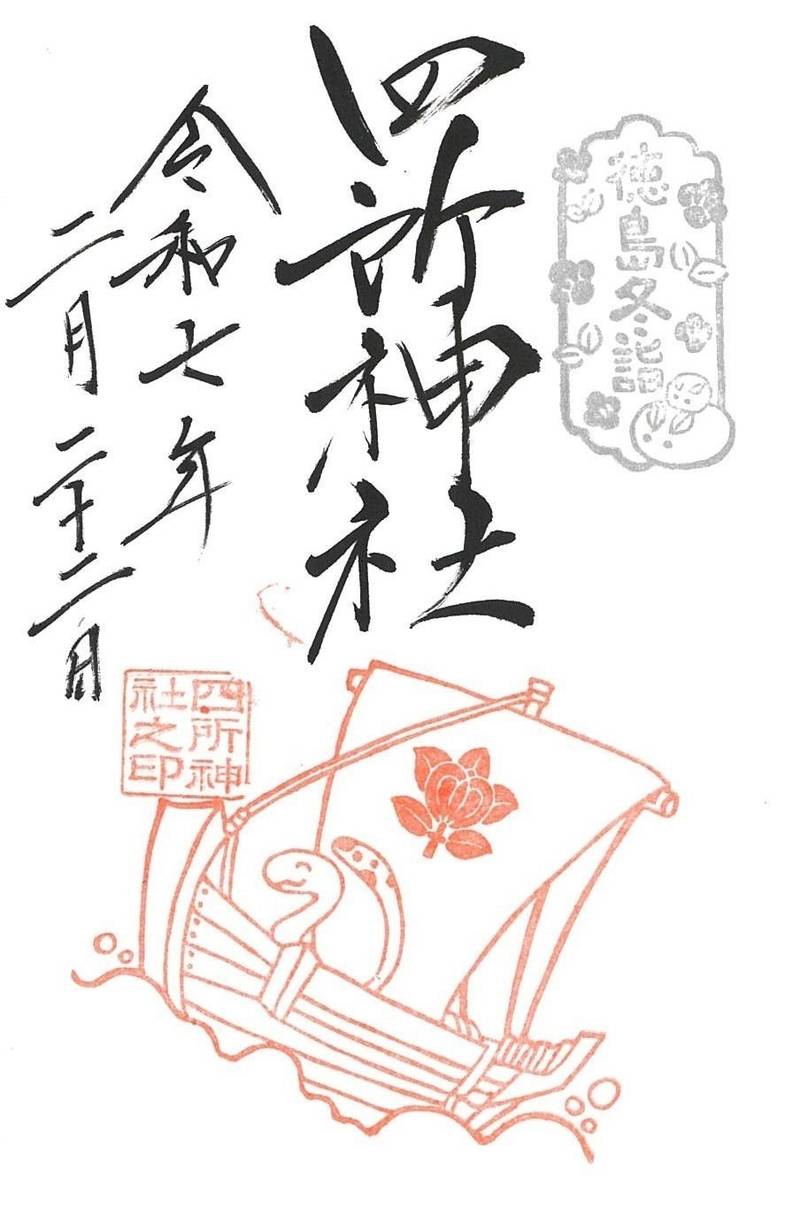 徳島冬詣
四所神社
令和七年
二月二十二日
四所神
社之印